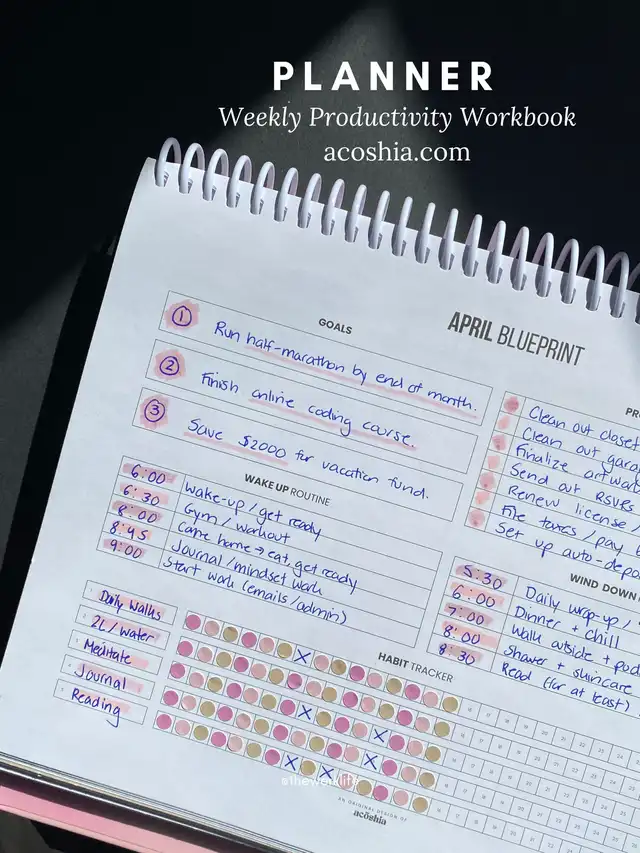 PLANNER
Weekly Productivity Workbook
acoshia.com
APRIL BLUEPRINT
GOALS
1 Run half-marathon by end of month.
2 Finish online coding course.
3 Save $2000 for vacation fund.
Clean out closet
Clean out
Finalize
Send out RSVPS
Renew license
File taxes / pay
Set up auto-
WAKE UP ROUTINE
6:00 Wake-up / get ready
6:30 Gym / workout
8:00 Come home → eat, get ready
8:45 Journal / mindset work
9:00 Start work (emails / admin)
WIND DOWN
5:30 Daily wrap-up /
6:00 Dinner + chill
7:00 Walk outside +
8:00 Shower + skincare
8:30 Read (1hr at least)
HABIT TRACKER
Daily Walks
2L / Water
Meditate
Journal
Reading
AN ORIGINAL DESIGN OF
acōshia